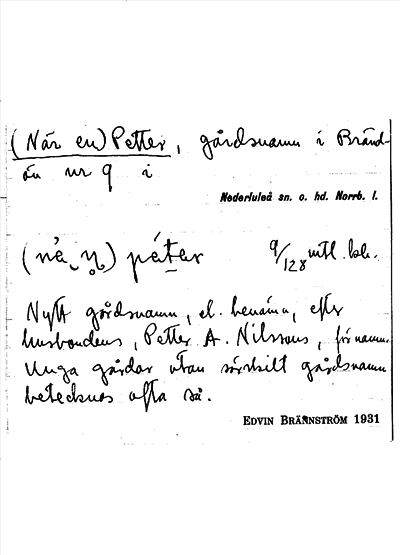 (När en) Petter, gårdsnamn i Bränd-
ön nr 9 i
Nederluleå sn. o. hd. Norrb. l.
9/128 mtl. bb.
Nytt gårdsnamn, el. benämn, efter
husbondens, Petter A. Nilssons, förnamn.
Unga gårdar utan särskilt gårdsnamn
betecknas ofta så.
EDVIN BRÄNNSTRÖM 1931